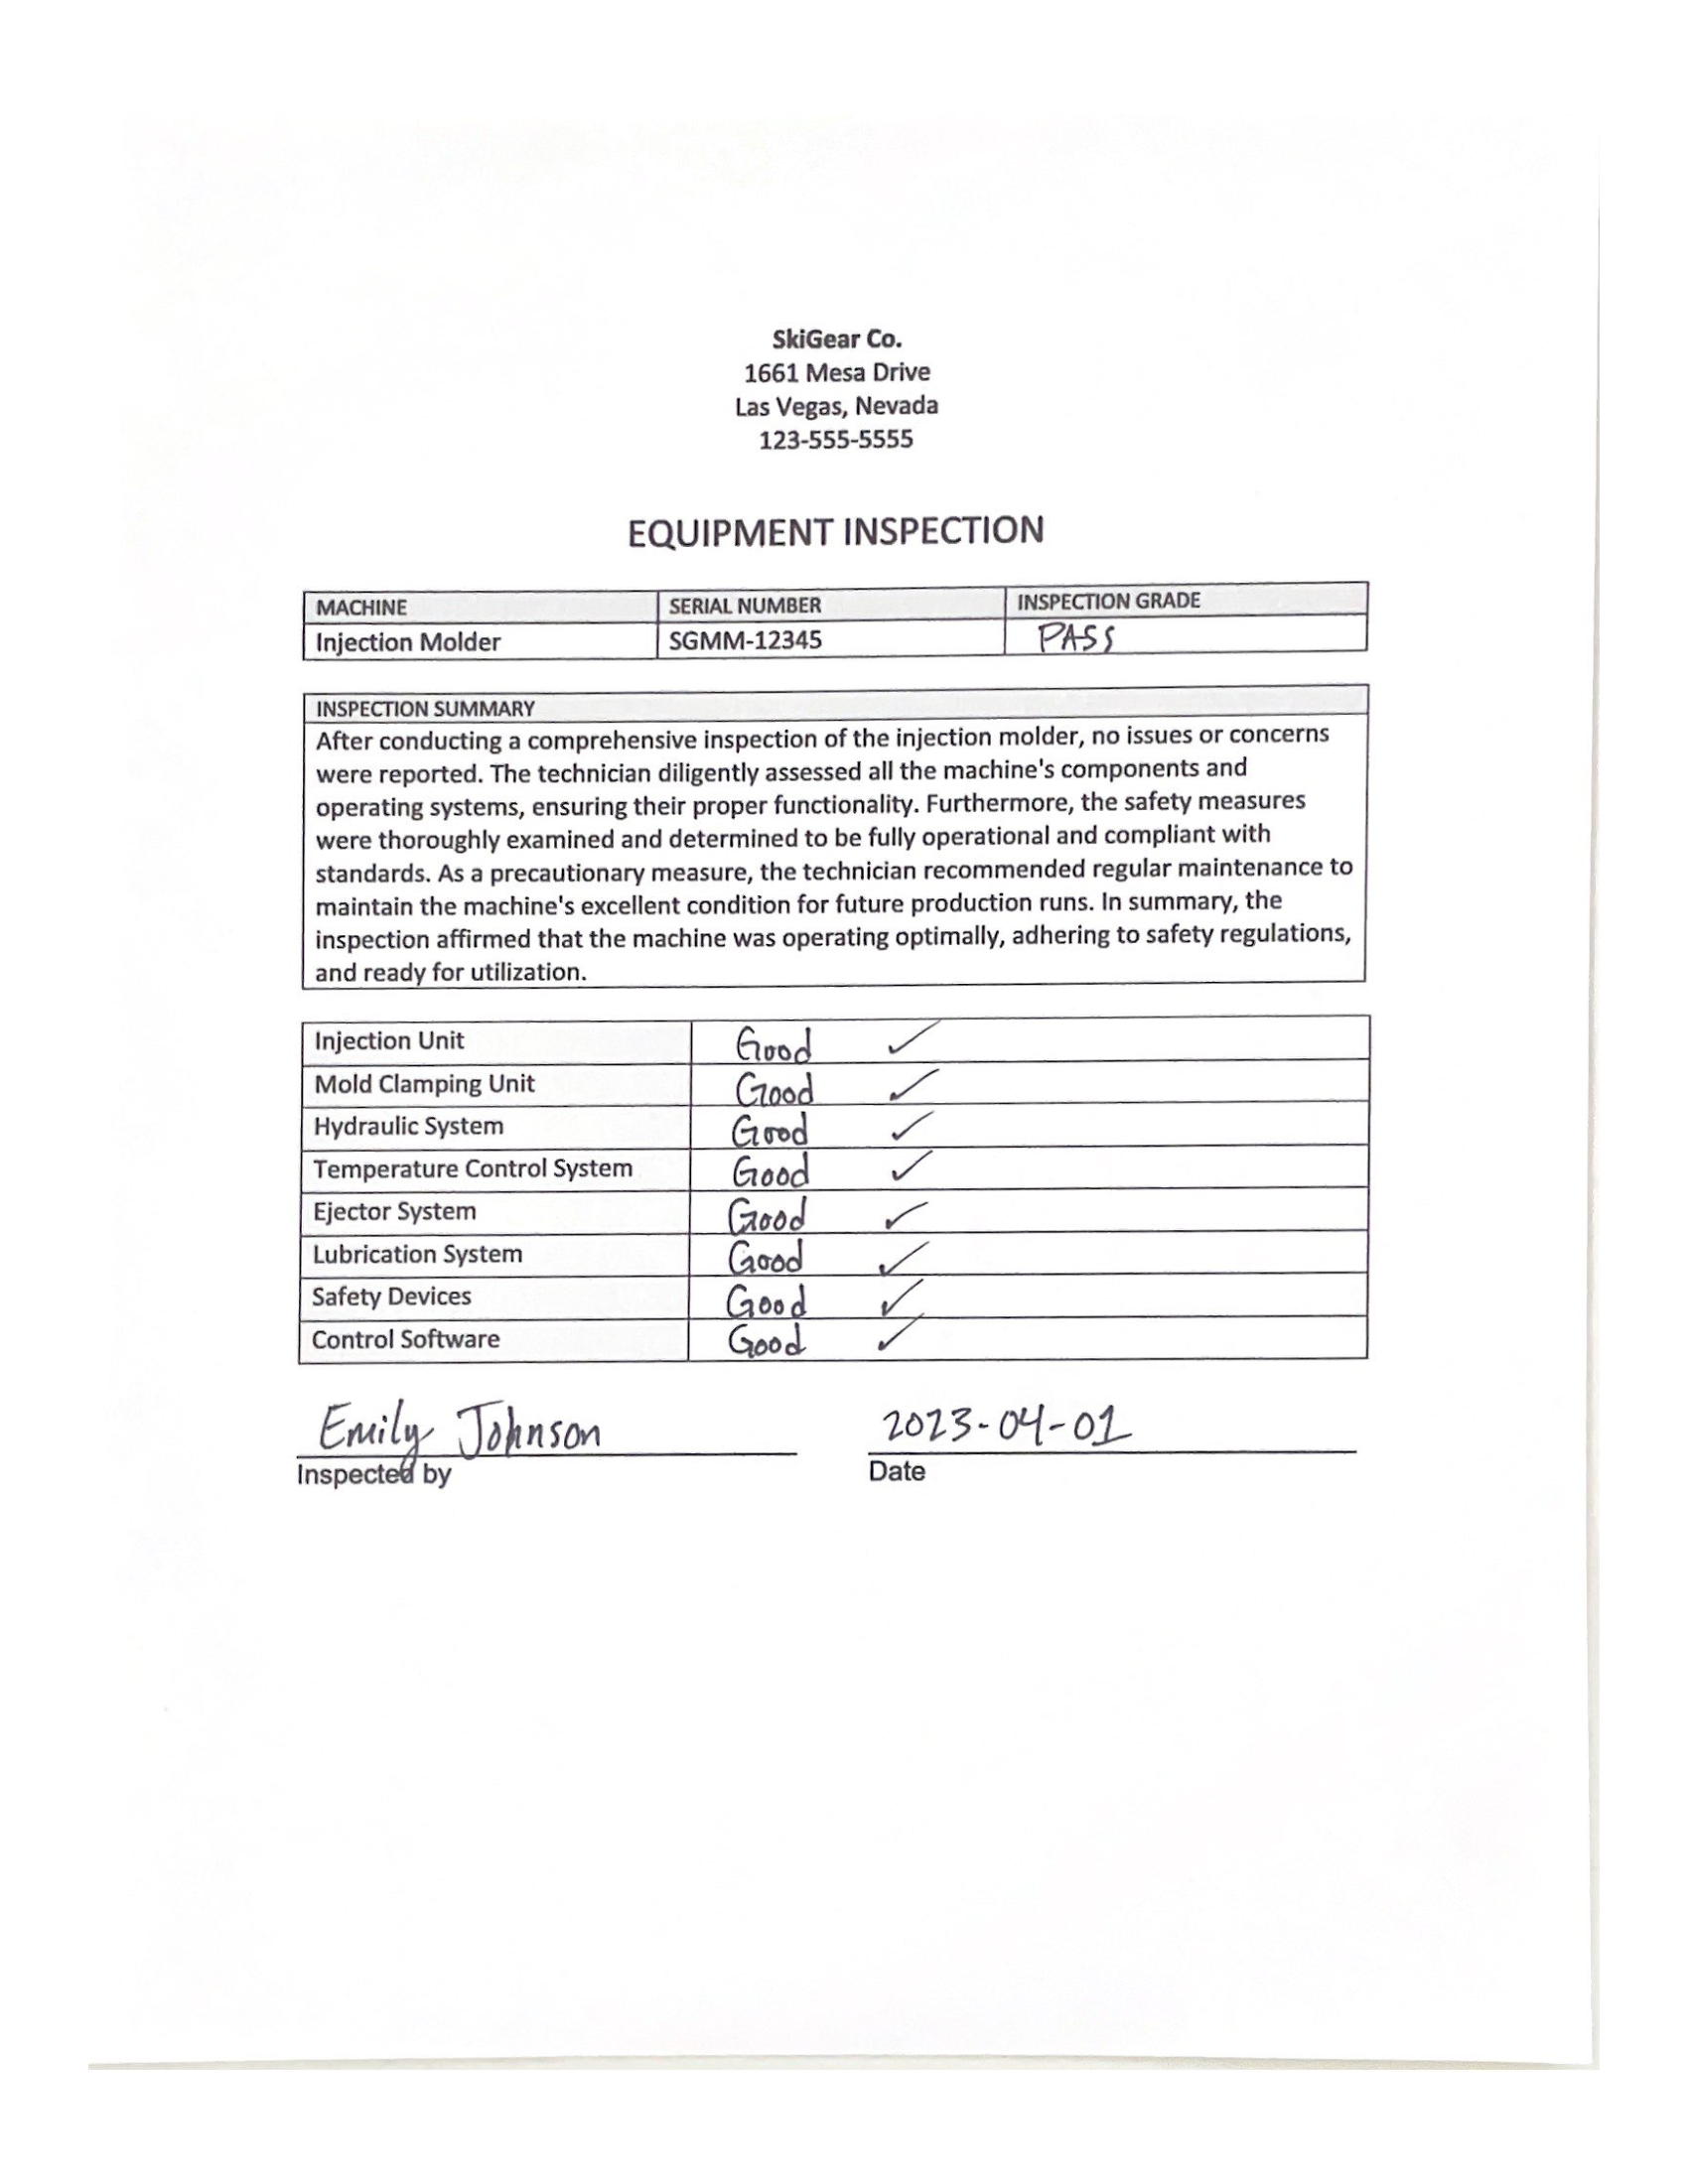 SkiGear Co.
1661 Mesa Drive
Las Vegas, Nevada
123-555-5555
EQUIPMENT INSPECTION
MACHINE SERIAL NUMBER INSPECTION GRADE
Injection Molder SGMM-12345 PASS
INSPECTION SUMMARY
After conducting a comprehensive inspection of the injection molder, no issues or concerns
were reported. The technician diligently assessed all the machine's components and
operating systems, ensuring their proper functionality. Furthermore, the safety measures
were thoroughly examined and determined to be fully operational and compliant with
standards. As a precautionary measure, the technician recommended regular maintenance to
maintain the machine's excellent condition for future production runs. In summary, the
inspection affirmed that the machine was operating optimally, adhering to safety regulations,
and ready for utilization.
Injection Unit Good ✓
Mold Clamping Unit Good ✓
Hydraulic System Good ✓
Temperature Control System Good ✓
Ejector System Good ✓
Lubrication System Good ✓
Safety Devices Good ✓
Control Software Good ✓
Emily Johnson 2023-04-01
Inspected by Date